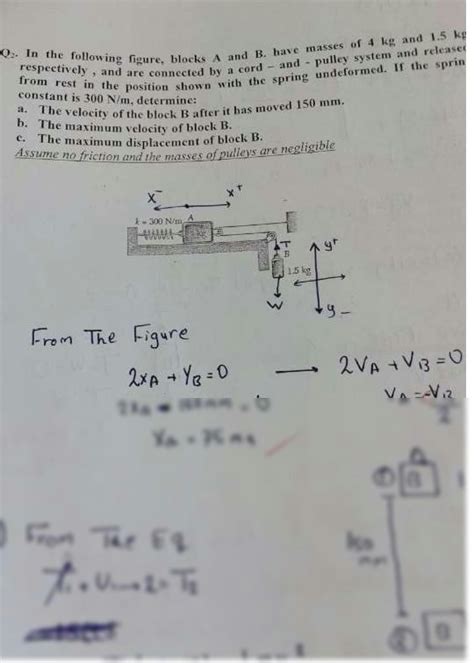 Q2. In the following figure, blocks A and B. have masses of 4 kg and 1.5 kg
respectively , and are connected by a cord – and - pulley system and released
from rest in the position shown with the spring undeformed. If the sprin
constant is 300 N/m, determine:
a. The velocity of the block B after it has moved 150 mm.
b. The maximum velocity of block B.
c. The maximum displacement of block B.
Assume no friction and the masses of pulleys are negligible
x⁻ x⁺
k = 300 N/m A
T y⁺
B
1.5 kg
W y-
From The Figure
2xA + yB = 0 → 2VA + VB = 0
VA = -VB
2
XA = 75 m
B
From The Eq
150
mm
T1 + U1→2 = T2
B